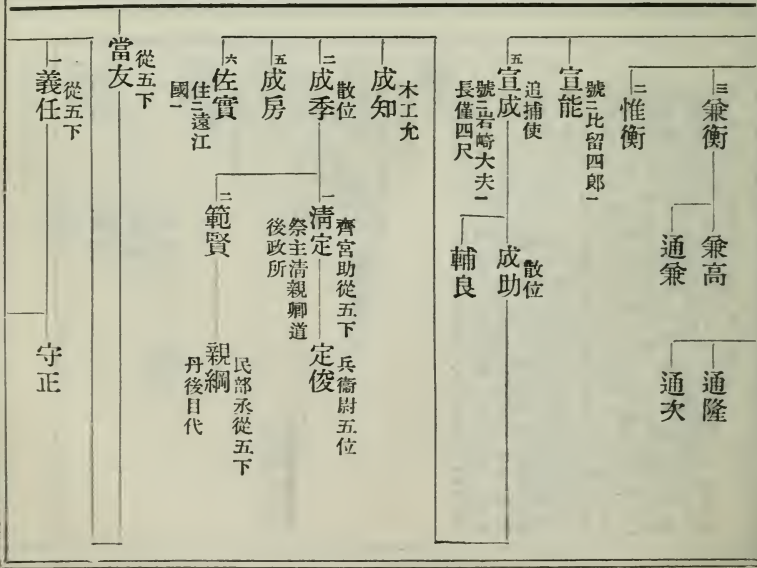 三 兼衡
兼高
通兼
通隆
通次
二 惟衡
宣能
號二比留四郎一
五 宣成
追捕使
號二岩崎大夫一
長僅四尺
成助 散位
輔良
成知 木工允
二 成季 散位
一 淸定
齊宮助從五下
祭主淸親卿道
後政所
定俊
兵衞尉五位
二 範賢
親綱
民部丞從五下
丹後目代
五 成房
六 佐實
住二遠江
國一
當友 從五下
一 義任 從五下
守正